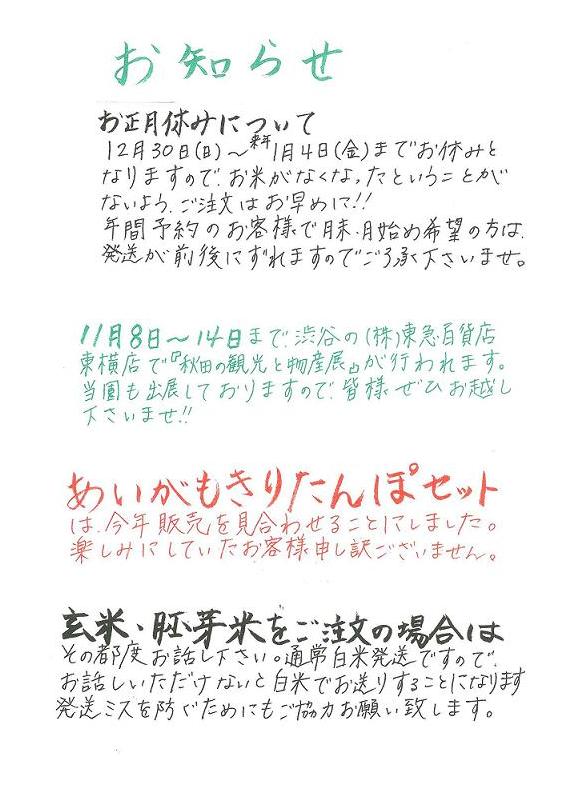 お知らせ
お正月休みについて
12月30日(日)～来年1月4日(金)までお休みと
なりますので、お米がなくなったということが
ないよう、ご注文はお早めに!!
年間予約のお客様で月末・月始め希望の方は、
発送が前後にずれますのでご了承下さいませ。
11月8日～14日まで、渋谷の(株)東急百貨店
東横店で『秋田の観光と物産展』が行われます。
当園も出展しておりますので、皆様ぜひお越し
下さいませ!!
あいがもきりたんぽセット
は、今年販売を見合わせることにしました。
楽しみにしていたお客様申し訳ございません。
玄米・胚芽米をご注文の場合は
その都度お話し下さい。通常白米発送ですので、
お話しいただけないと白米でお送りすることになります
発送ミスを防ぐためにもご協力お願い致します。